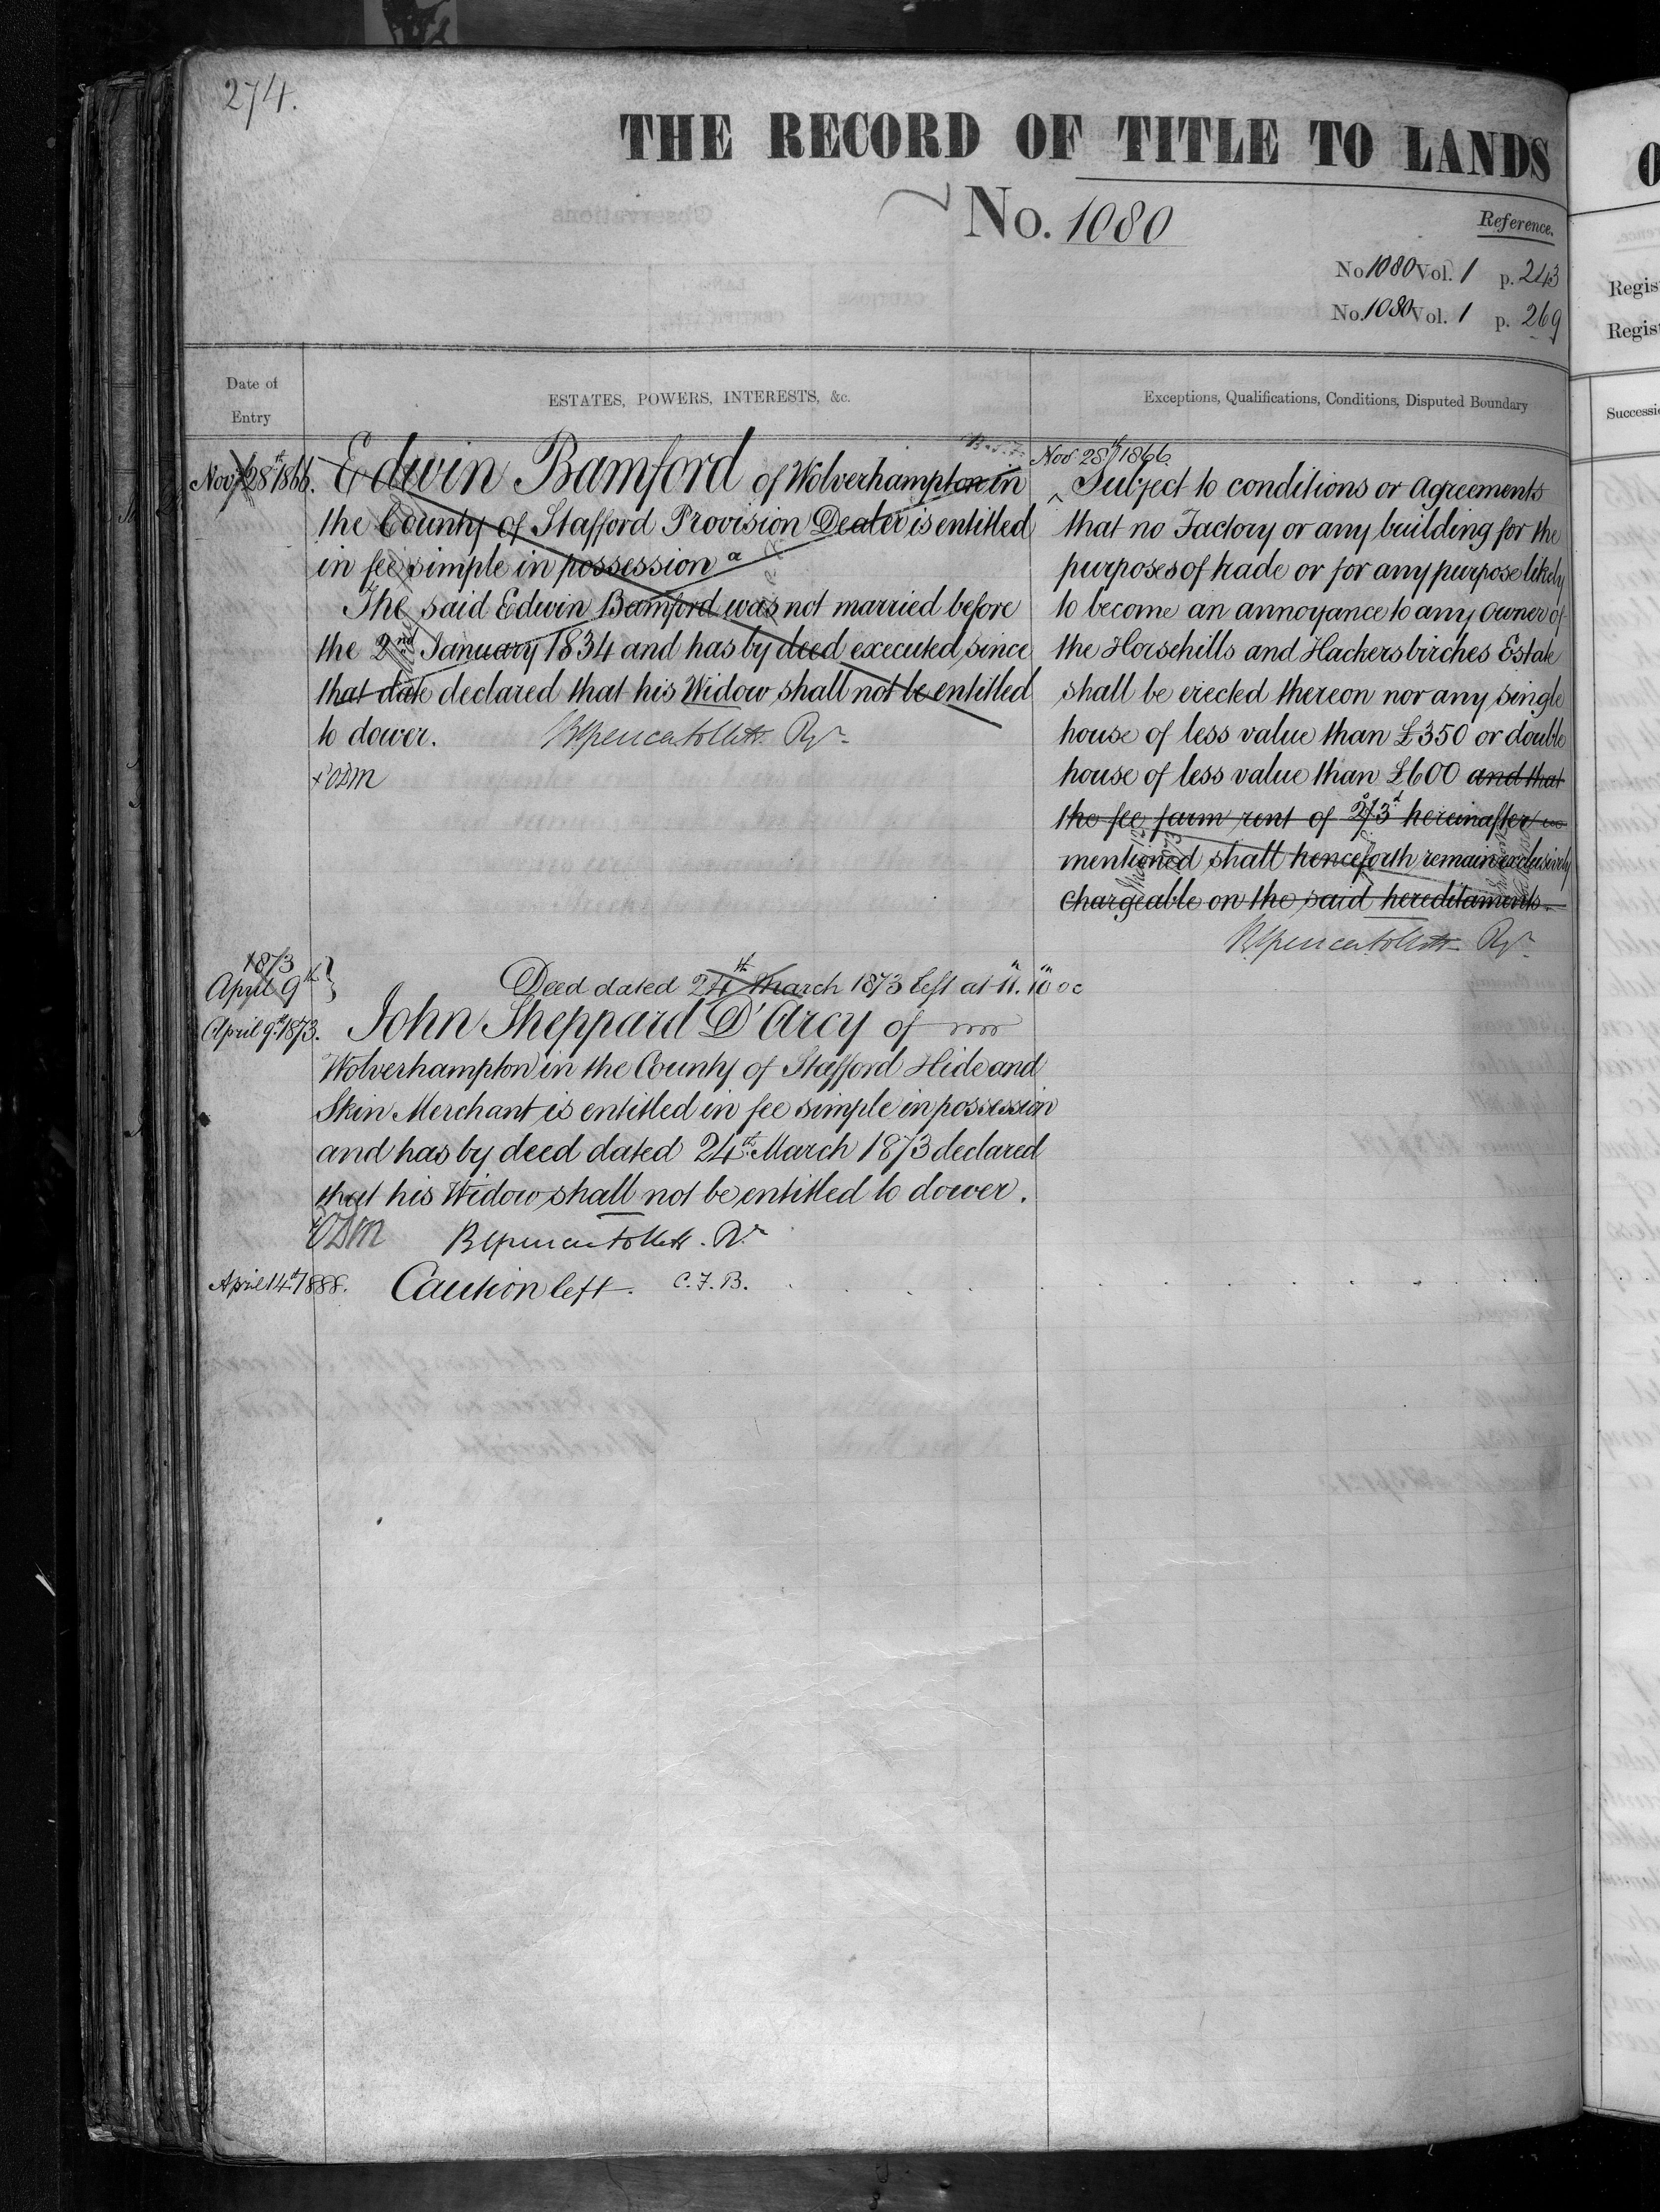 274.
THE RECORD OF TITLE TO LANDS
No. 1080
Reference.
No 1080 Vol. 1 p. 243
No. 1080 Vol. 1 p. 269
Date of
Entry
ESTATES, POWERS, INTERESTS, &c.
Exceptions, Qualifications, Conditions, Disputed Boundary
Nov 28th 1866.
Edwin Bamford of Wolverhampton in
the County of Stafford Provision Dealer is entitled
in fee simple in possession
The said Edwin Bamford was not married before
the 2nd January 1834 and has by deed executed since
that date declared that his Widow shall not be entitled
to dower.
Nov 28th 1866.
Subject to conditions or agreements
that no Factory or any building for the
purposes of trade or for any purpose likely
to become an annoyance to any owner of
the Horsehills and Hackersbirches Estate
shall be erected thereon nor any single
house of less value than £350 or double
house of less value than £600 and that
the fee farm rent of 2s/3d hereinafter
mentioned shall henceforth remain exclusively
chargeable on the said hereditaments.
1873
April 9th
Deed dated 24th March 1873 left at 11.
April 9th 1873.
John Sheppard D'Arcy of
Wolverhampton in the County of Stafford Hide and
Skin Merchant is entitled in fee simple in possession
and has by deed dated 24th March 1873 declared
that his Widow shall not be entitled to dower.
April 14th 1888.
Caution left. C.F.B.
Regist
Regist
Successi